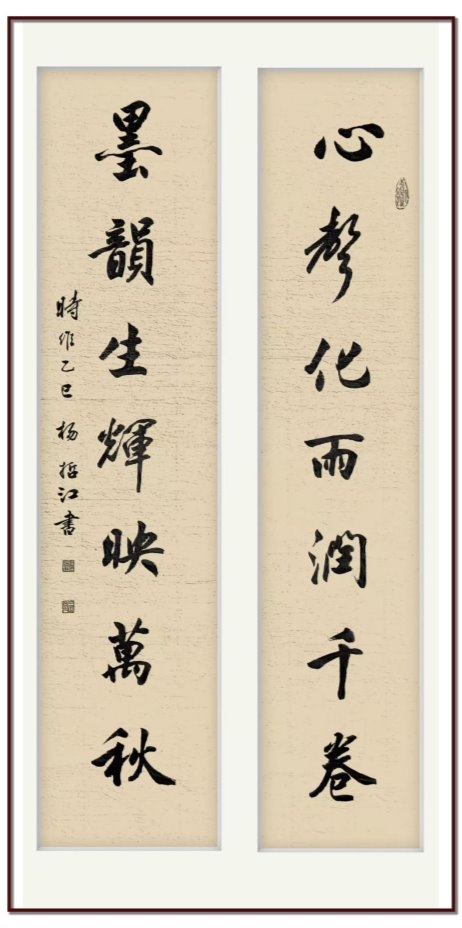 心聲化雨潤千卷
墨韻生輝映萬秋
時維乙巳 楊哲江書